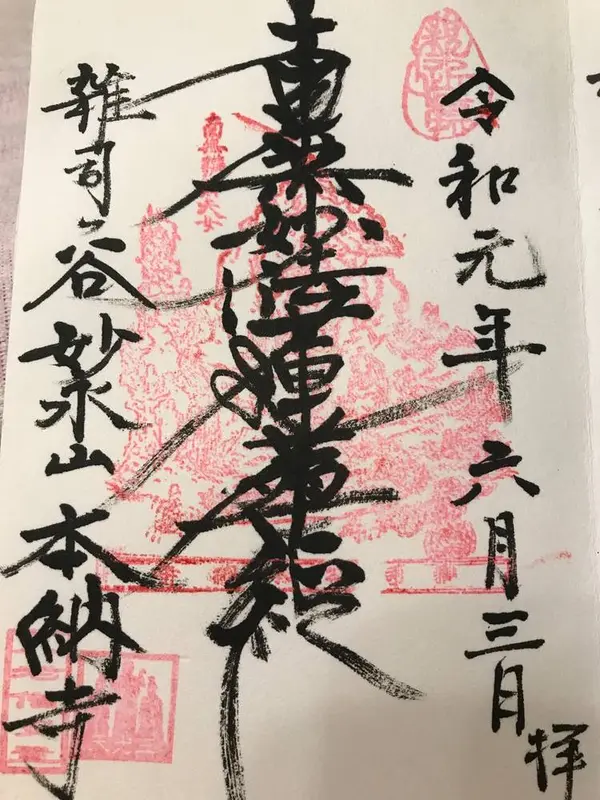 令和元年六月三日拝
南無妙法蓮華経
雑司ヶ谷妙永山本納寺